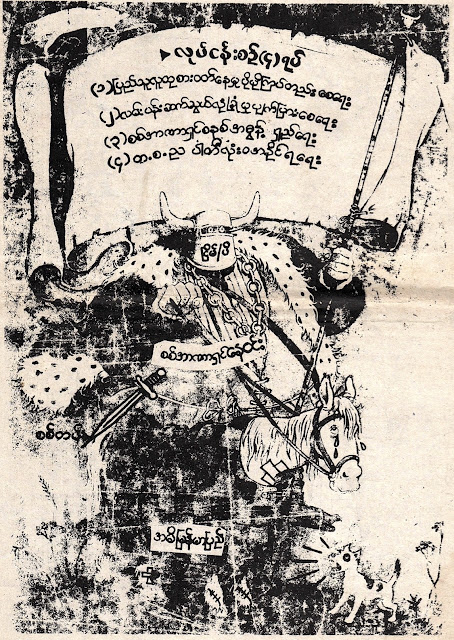 လုပ်ငန်းစဉ်(၄)ရပ်
(၁)ပြည်သူလူထုစားဝတ်နေမှုပိုမိုကြပ်တည်းစေရေး
(၂)လမ်းပန်းဆက်သွယ်လုံခြုံမှုပျက်ပြားစေရေး
(၃)စစ်အာဏာရှင်စနစ်အဓွန့်ရှည်ရေး
(၄)တ.စ.ညပါတီသုံးဝအနိုင်ရရေး
စစ်အာဏာရှင်နေဝင်း
စစ်တပ်
အမိမြန်မာပြည်